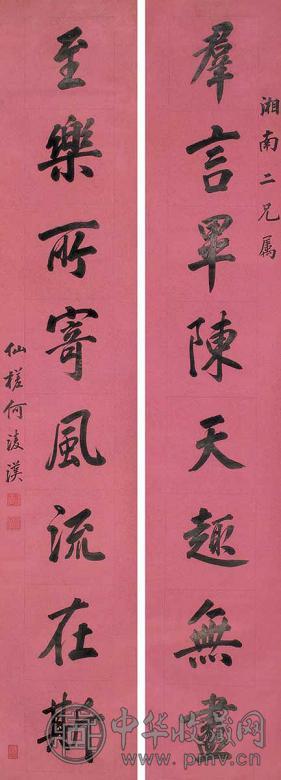 湘南二兄属
羣言畢陳天趣無盡
至樂所寄風流在斯
仙槎何凌漢
中华收藏网
www.pmv.cn